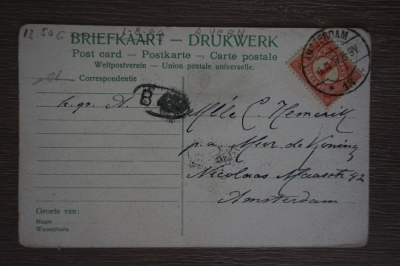 12.50
BRIEFKAART — DRUKWERK
Post card — Postkarte — Carte postale
Weltpostverein — Union postale universelle.
Correspondentie
AMSTERDAM
B
Mlle C. Hemerik
p.a Mevr. de Koning
Nicolaas Maesstr 42
Amsterdam
Groete van:
Naam
Woonplaats